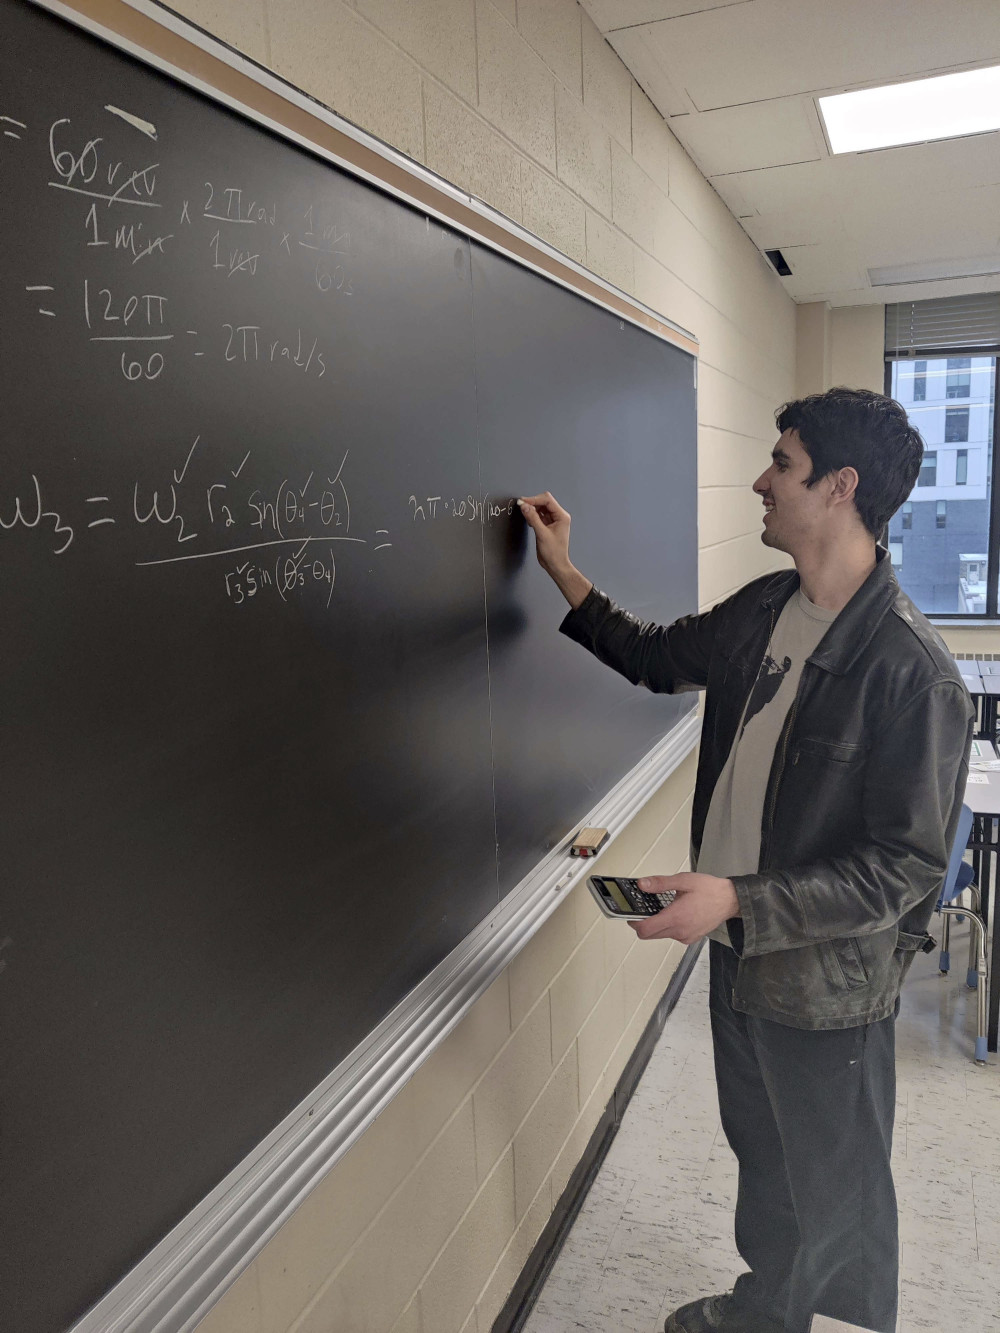 = 60 rev / 1 min × 2π rad / 1 rev × 1 min / 60s
= 120π / 60 = 2π rad/s
ω₃ = ω₂ r₂ sin(θ₄-θ₂) / r₃ sin(θ₃-θ₄) = 2π·20 sin(120-6